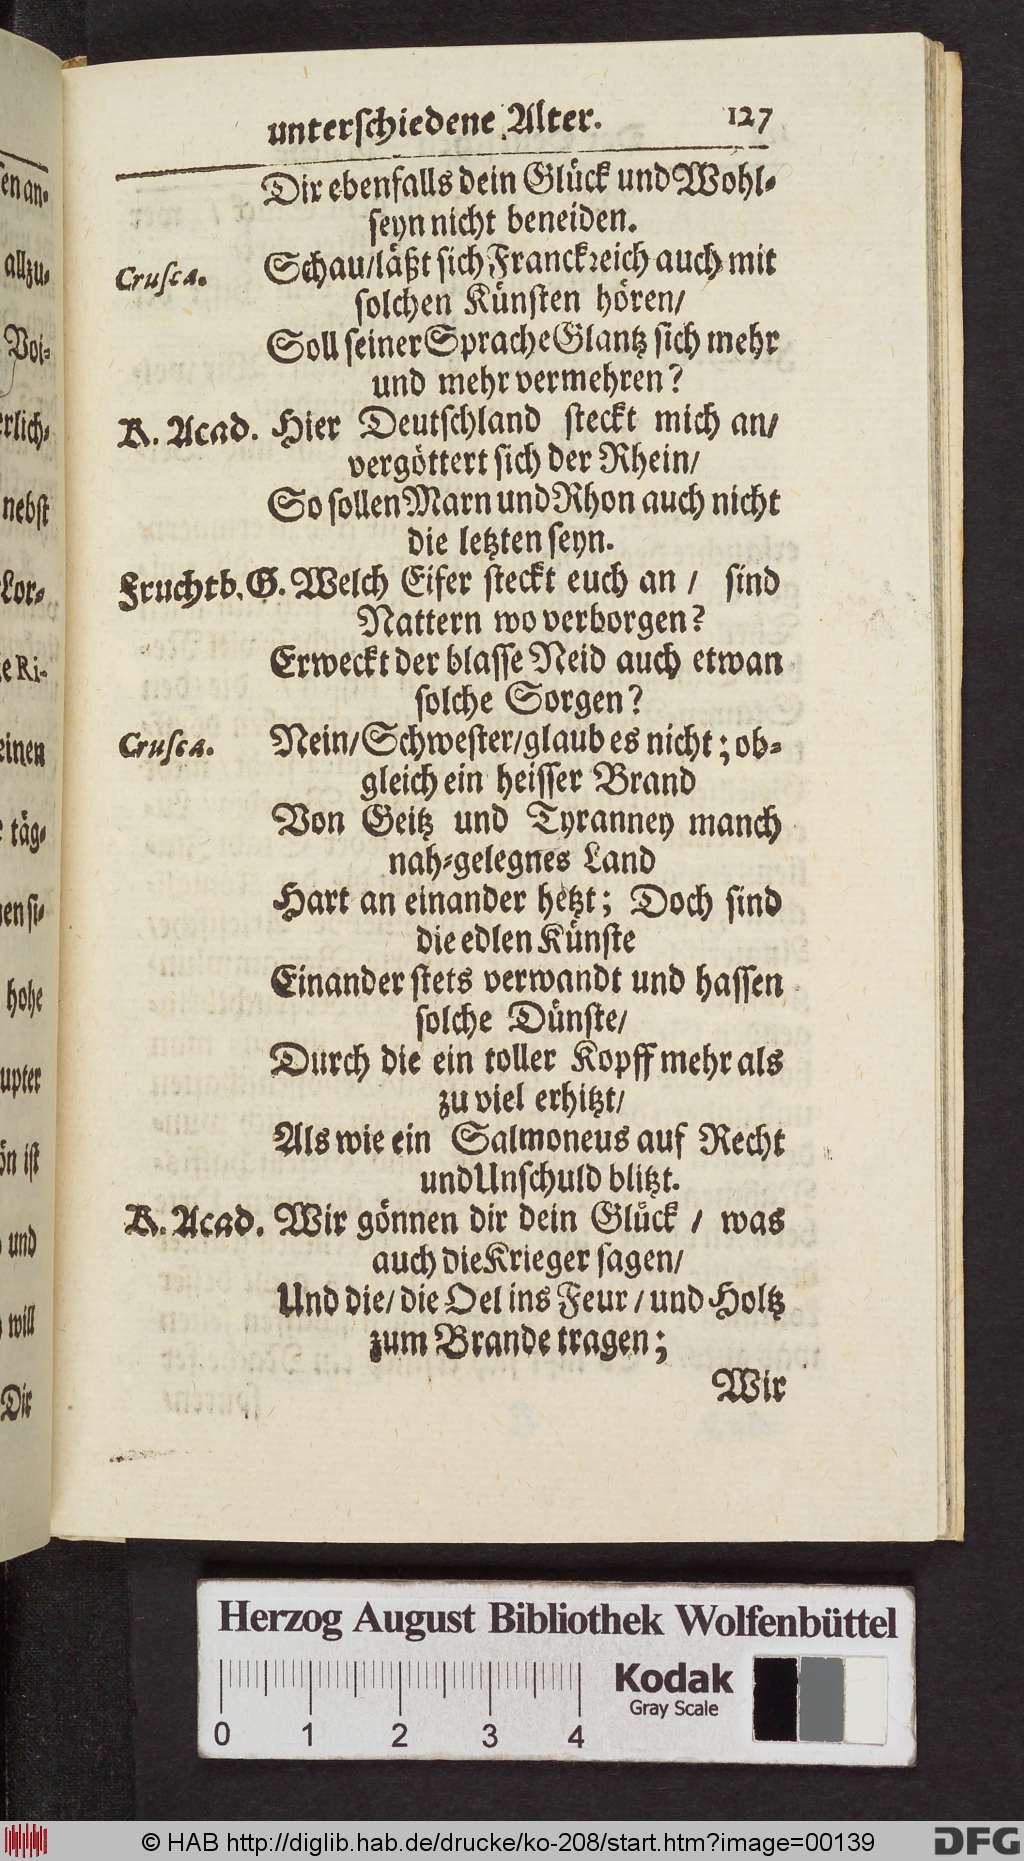 unterschiedene Alter. 127
Dir ebenfalls dein Glück und Wohl-
seyn nicht beneiden.
Crusca. Schau/läßt sich Franckreich auch mit
solchen Künsten hören/
Soll seiner Sprache Glantz sich mehr
und mehr vermehren?
K. Acad. Hier Deutschland steckt mich an/
vergöttert sich der Rhein/
So sollen Marn und Rhon auch nicht
die letzten seyn.
Fruchtb. G. Welch Eifer steckt euch an / sind
Nattern wo verborgen?
Erweckt der blasse Neid auch etwan
solche Sorgen?
Crusca. Nein/Schwester/glaub es nicht; ob-
gleich ein heisser Brand
Von Geitz und Tyranney manch
nah-gelegnes Land
Hart an einander hetzt; Doch sind
die edlen Künste
Einander stets verwandt und hassen
solche Dünste/
Durch die ein toller Kopff mehr als
zu viel erhitzt/
Als wie ein Salmoneus auf Recht
und Unschuld blitzt.
K. Acad. Wir gönnen dir dein Glück / was
auch die Krieger sagen/
Und die/ die Oel ins Feur / und Holtz
zum Brande tragen;
Wir
en an-
allzu-
Voi-
erlich-
nebst
Lor-
e Ri-
einen
täg-
en si-
hohe
upter
ön ist
und
will
Dir
Herzog August Bibliothek Wolfenbüttel
Kodak
Gray Scale
0 1 2 3 4
© HAB http://diglib.hab.de/drucke/ko-208/start.htm?image=00139
DFG